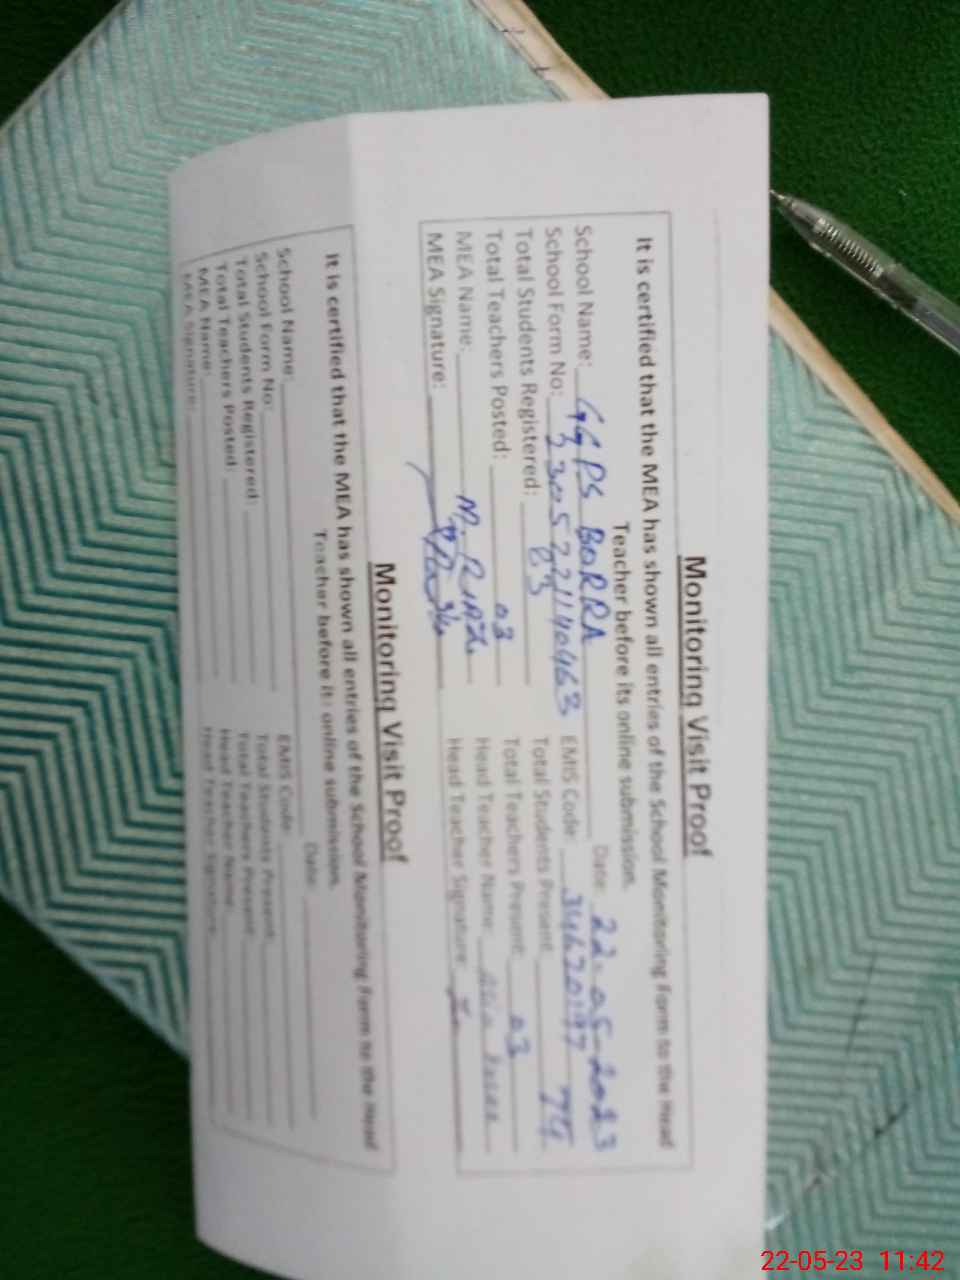 Monitoring Visit Proof
It is certified that the MEA has shown all entries of the School Monitoring Form to the Head
Teacher before its online submission.
Date: 22-05-2023
School Name: GGPS BORRA
School Form No: EMIS Code:
Total Students Registered: 83 Total Students Present:
Total Teachers Posted: 03 Total Teachers Present: 03
MEA Name: M. RIAZ Head Teacher Name:
MEA Signature: Head Teacher Signature:
Monitoring Visit Proof
It is certified that the MEA has shown all entries of the School Monitoring Form to the Head
Teacher before its online submission.
Date:
School Name:
School Form No: EMIS Code:
Total Students Registered: Total Students Present:
Total Teachers Posted: Total Teachers Present:
MEA Name: Head Teacher Name:
MEA Signature: Head Teacher Signature:
22-05-23 11:42